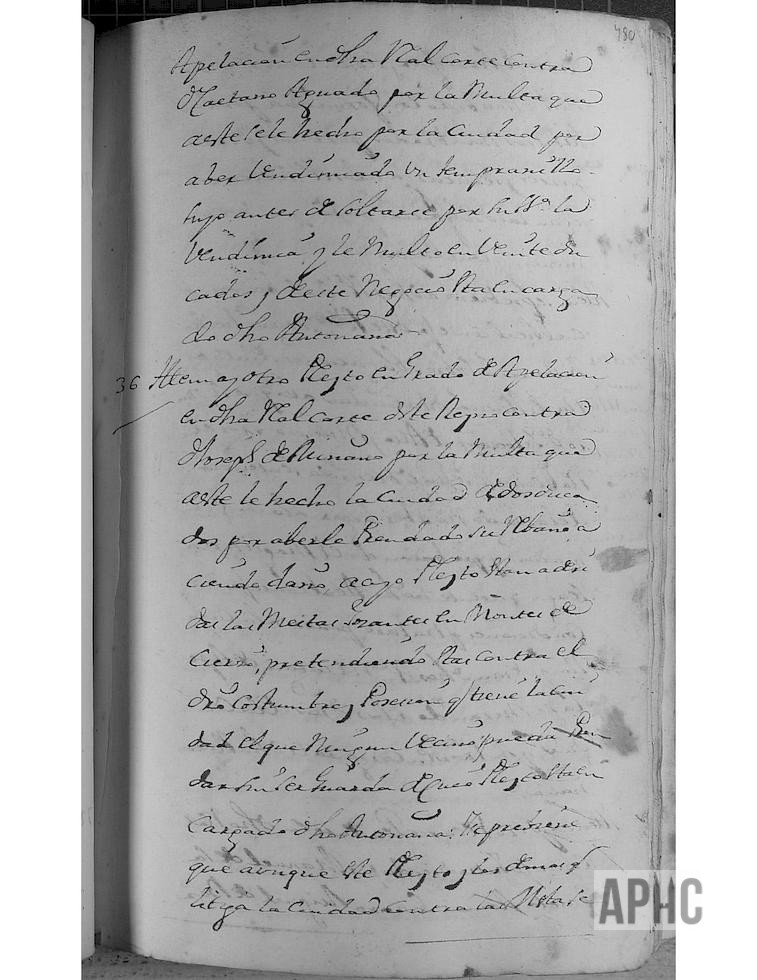 480
Apelacion en dha Rl al Corte contra
Dn Caetano Aguado por la Multa que
a este se le hecho por la Ciudad por
aber Vendimiado Un tempranillo
suyo antes de soltarse por su Sa. la
Vendimia y le Multo en Veinte du
cados, y de este Negocio Sta encarga
do dho Antoñana
36 Ittem ay otro Pleyto en Grado de Apelacion
en dha Rl Corte deste Reyno contra
Dn Joseph de Miñano por la Multa que
a este le hecho la Ciudad de dos duca
dos por aberle Prendado su Rebaño a
ciendo daño a cuyo Pleyto Stan adri
das las Mestas en Montes de
Cierzo, pretendiendo Stas contra el
dro Costumbre y Posesion q tiene la Ciu
dad el que Ningun Vecino pueda Pren
dar sin ser Guarda de cuio Pleyto Sta en
Cargado dho Antoñana. Se previene
que aunque Ste Pleyto y los demas q
litiga la Ciudad contra las Mesta se
APHC